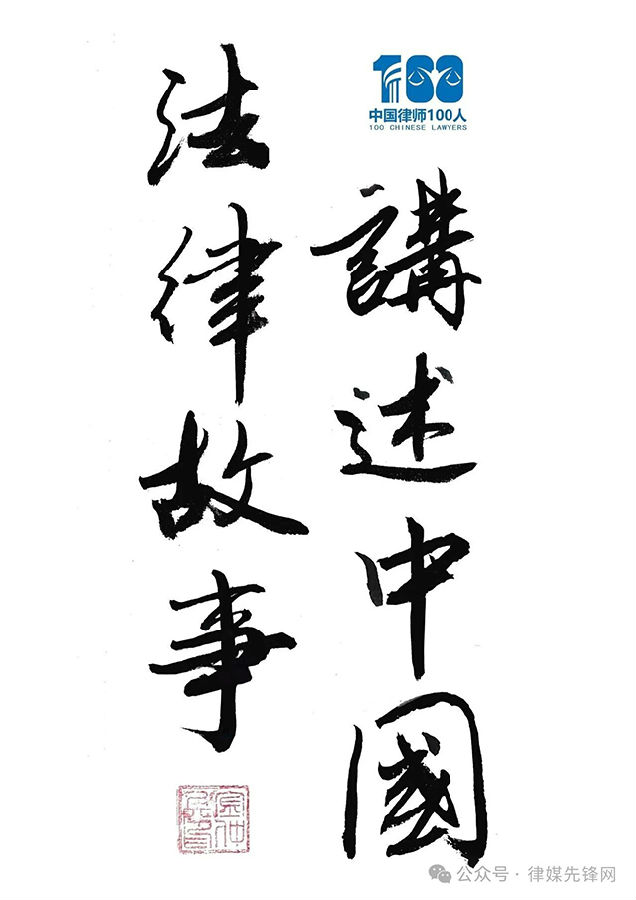 100
中国律师100人
100 CHINESE LAWYERS
講述中國
法律故事
公众号·律媒先锋网